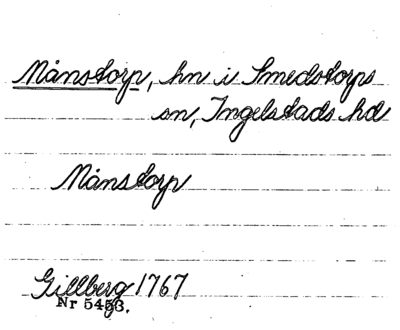 Månstorp, hn i Smedstorps
sn, Ingelstads hd
Månstorp
Gillberg 1767
Nr 5453.